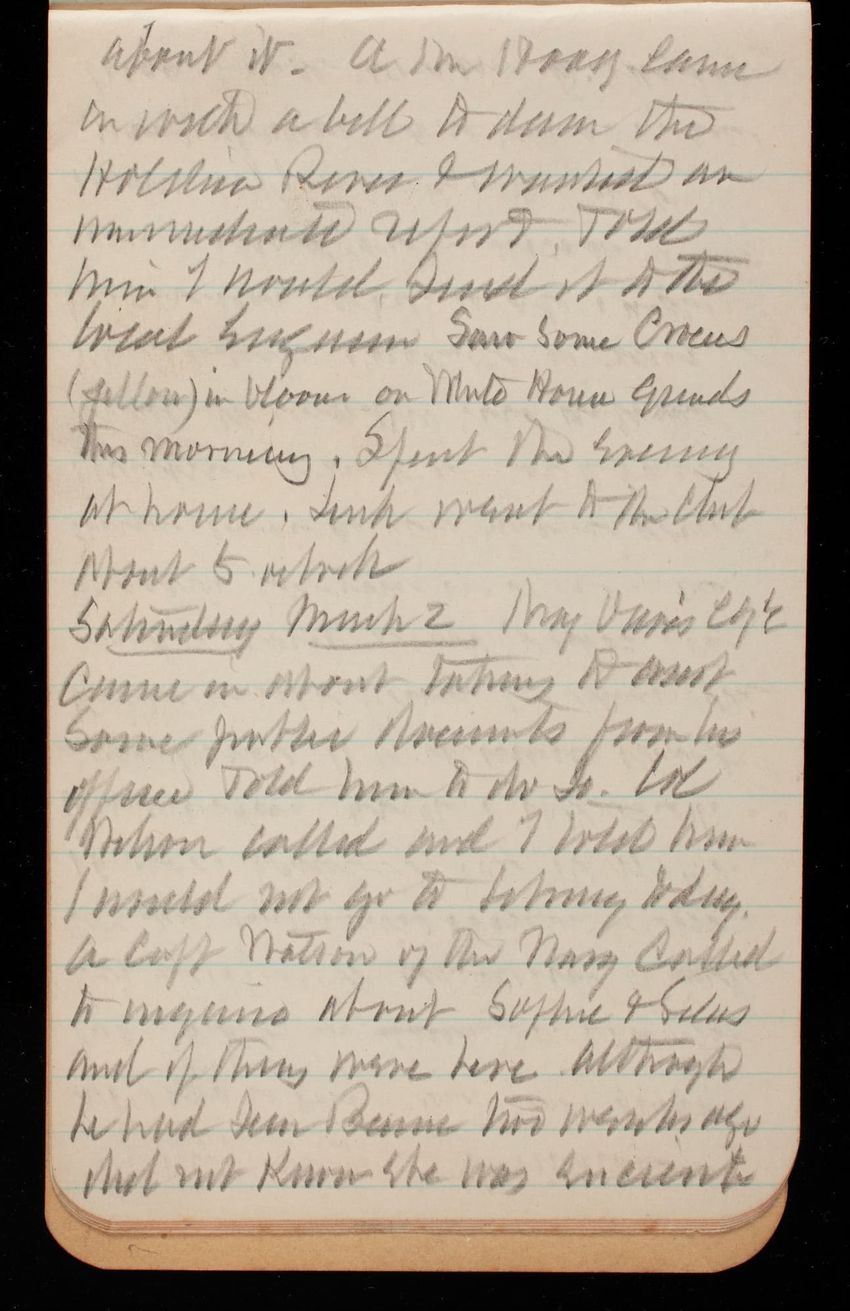 about it. A Mr Hoag came
in with a bill to dam the
Holston River & wanted an
immediate report. Told
him I would send it to the
local Engineer Saw some Crocus
(yellow) in bloom on White House Grounds
this morning. Spent the evening
at home. went to the Club
about 5 oclock
Saturday March 2 Davis
Came in about taking to
Some public documents from his
office Told him to do so. Col
Nelson called and I told him
I would not go to today.
A Capt Watson of the Navy Called
to inquire about Sophie & Silas
and if they were here although
he had seen two weeks ago
did not Know she was